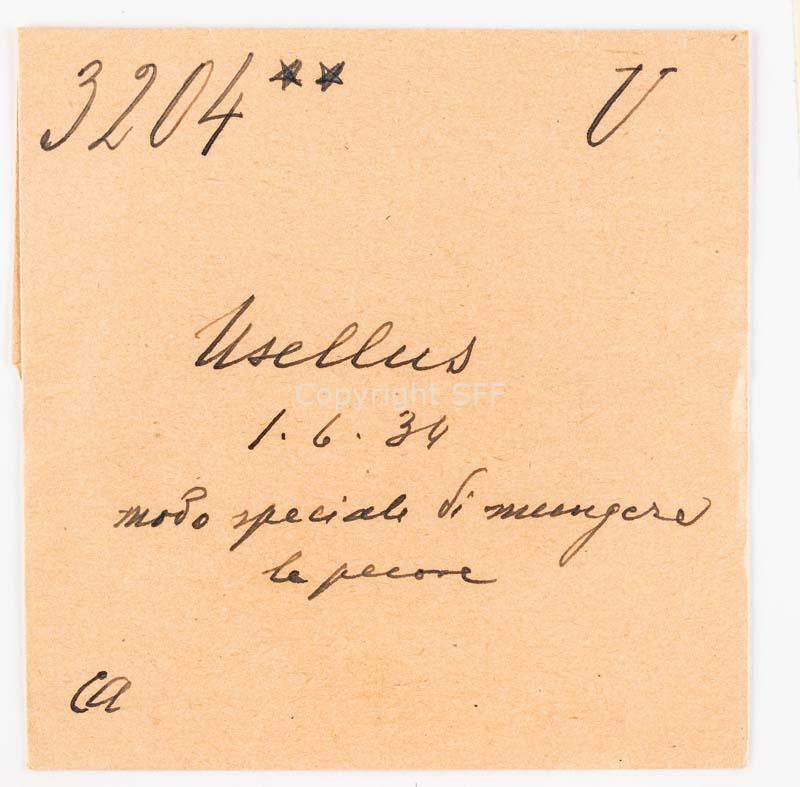 3204** V
Usellus
Copyright SFF
1.6.34
modo speciale di mungere
le pecore
ca